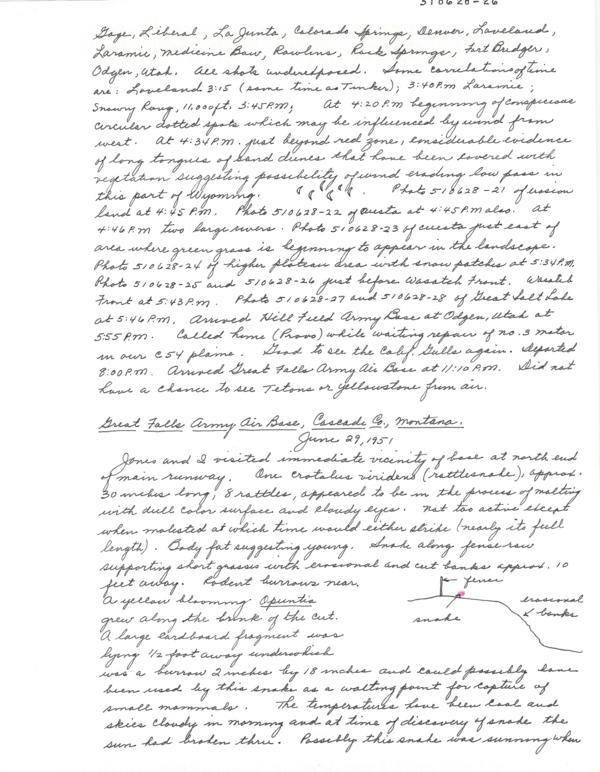 510628-26
Gage, Liberal, La Junta, Colorado Springs, Denver, Loveland,
Laramie, Medicine Bow, Rawlins, Rock Springs, Fort Bridger,
Odgen, Utah. All shots underexposed. Some correlations of time
are: Loveland 3:15 (same time as Tunker); 3:40 P.M Laramie;
Snowy Rang, 11,000ft. 3:45 P.M; At 4:20 P.M beginning of conspicuous
circular dotted spots which may be influenced by wind from
west. At 4:34 P.M. just beyond red zone, considerable evidence
of long tongues of sand dunes that have been covered with
vegetation suggesting possibility of wind eroding low pass in
this part of Wyoming. Photo 510628-21 of erosion
land at 4:45 P.M. Photo 510628-22 of cuesta at 4:45 P.M also. At
4:46 P.M two large rivers. Photo 510628-23 of cuesta just east of
area where green grass is beginning to appear in the landscape.
Photo 510628-24 of higher plateau area with snow patches at 5:34 P.M.
Photo 510628-25 and 510628-26 just before Wasatch Front. Wasatch
Front at 5:43 P.M. Photo 510628-27 and 510628-28 of Great Salt Lake
at 5:46 P.M. Arrived Hill Field Army Base at Odgen, Utah at
5:55 P.M. Called home (Provo) while waiting repair of no. 3 motor
in our C54 plane. Good to see the Calif. Gulls again. Departed
8:00 P.M. Arrived Great Falls Army Air Base at 11:10 P.M. Did not
have a chance to see Tetons or Yellowstone from air.
Great Falls Army Air Base, Cascade Co., Montana.
June 29, 1951
Jones and I visited immediate vicinity of base at north end
of main runway. One crotalus viridens (rattlesnake), approx.
30 inches long, 8 rattles, appeared to be in the process of molting
with dull color surface and cloudy eyes. Not too active except
when molested at which time would either strike (nearly its full
length). Body fat suggesting young. Snake along fense row
supporting short grasses with erosional and cut banks approx. 10
feet away. Rodent burrows near.
A yellow blooming Opuntia
grew along the brink of the cut.
A large cardboard fragment was
lying 1/2 foot away underwhish
fense
snake
erosional
& banks
was a burrow 2 inches by 18 inches and could possibly have
been used by this snake as a waiting point for capture of
small mammals. The temperatures have been cool and
skies cloudy in morning and at time of discovery of snake the
sun had broken thru. Possibly this snake was sunning when